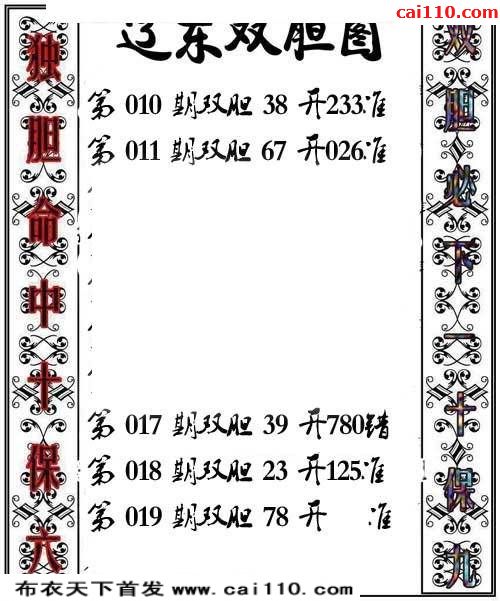 cai110.com
辽东双胆图
独胆命中十保六
第 010 期双胆 38 开233准
第 011 期双胆 67 开026准
第 017 期双胆 39 开780错
第 018 期双胆 23 开125准
第 019 期双胆 78 开 准
双胆必下一十保九
布衣天下首发 www.cai110.com